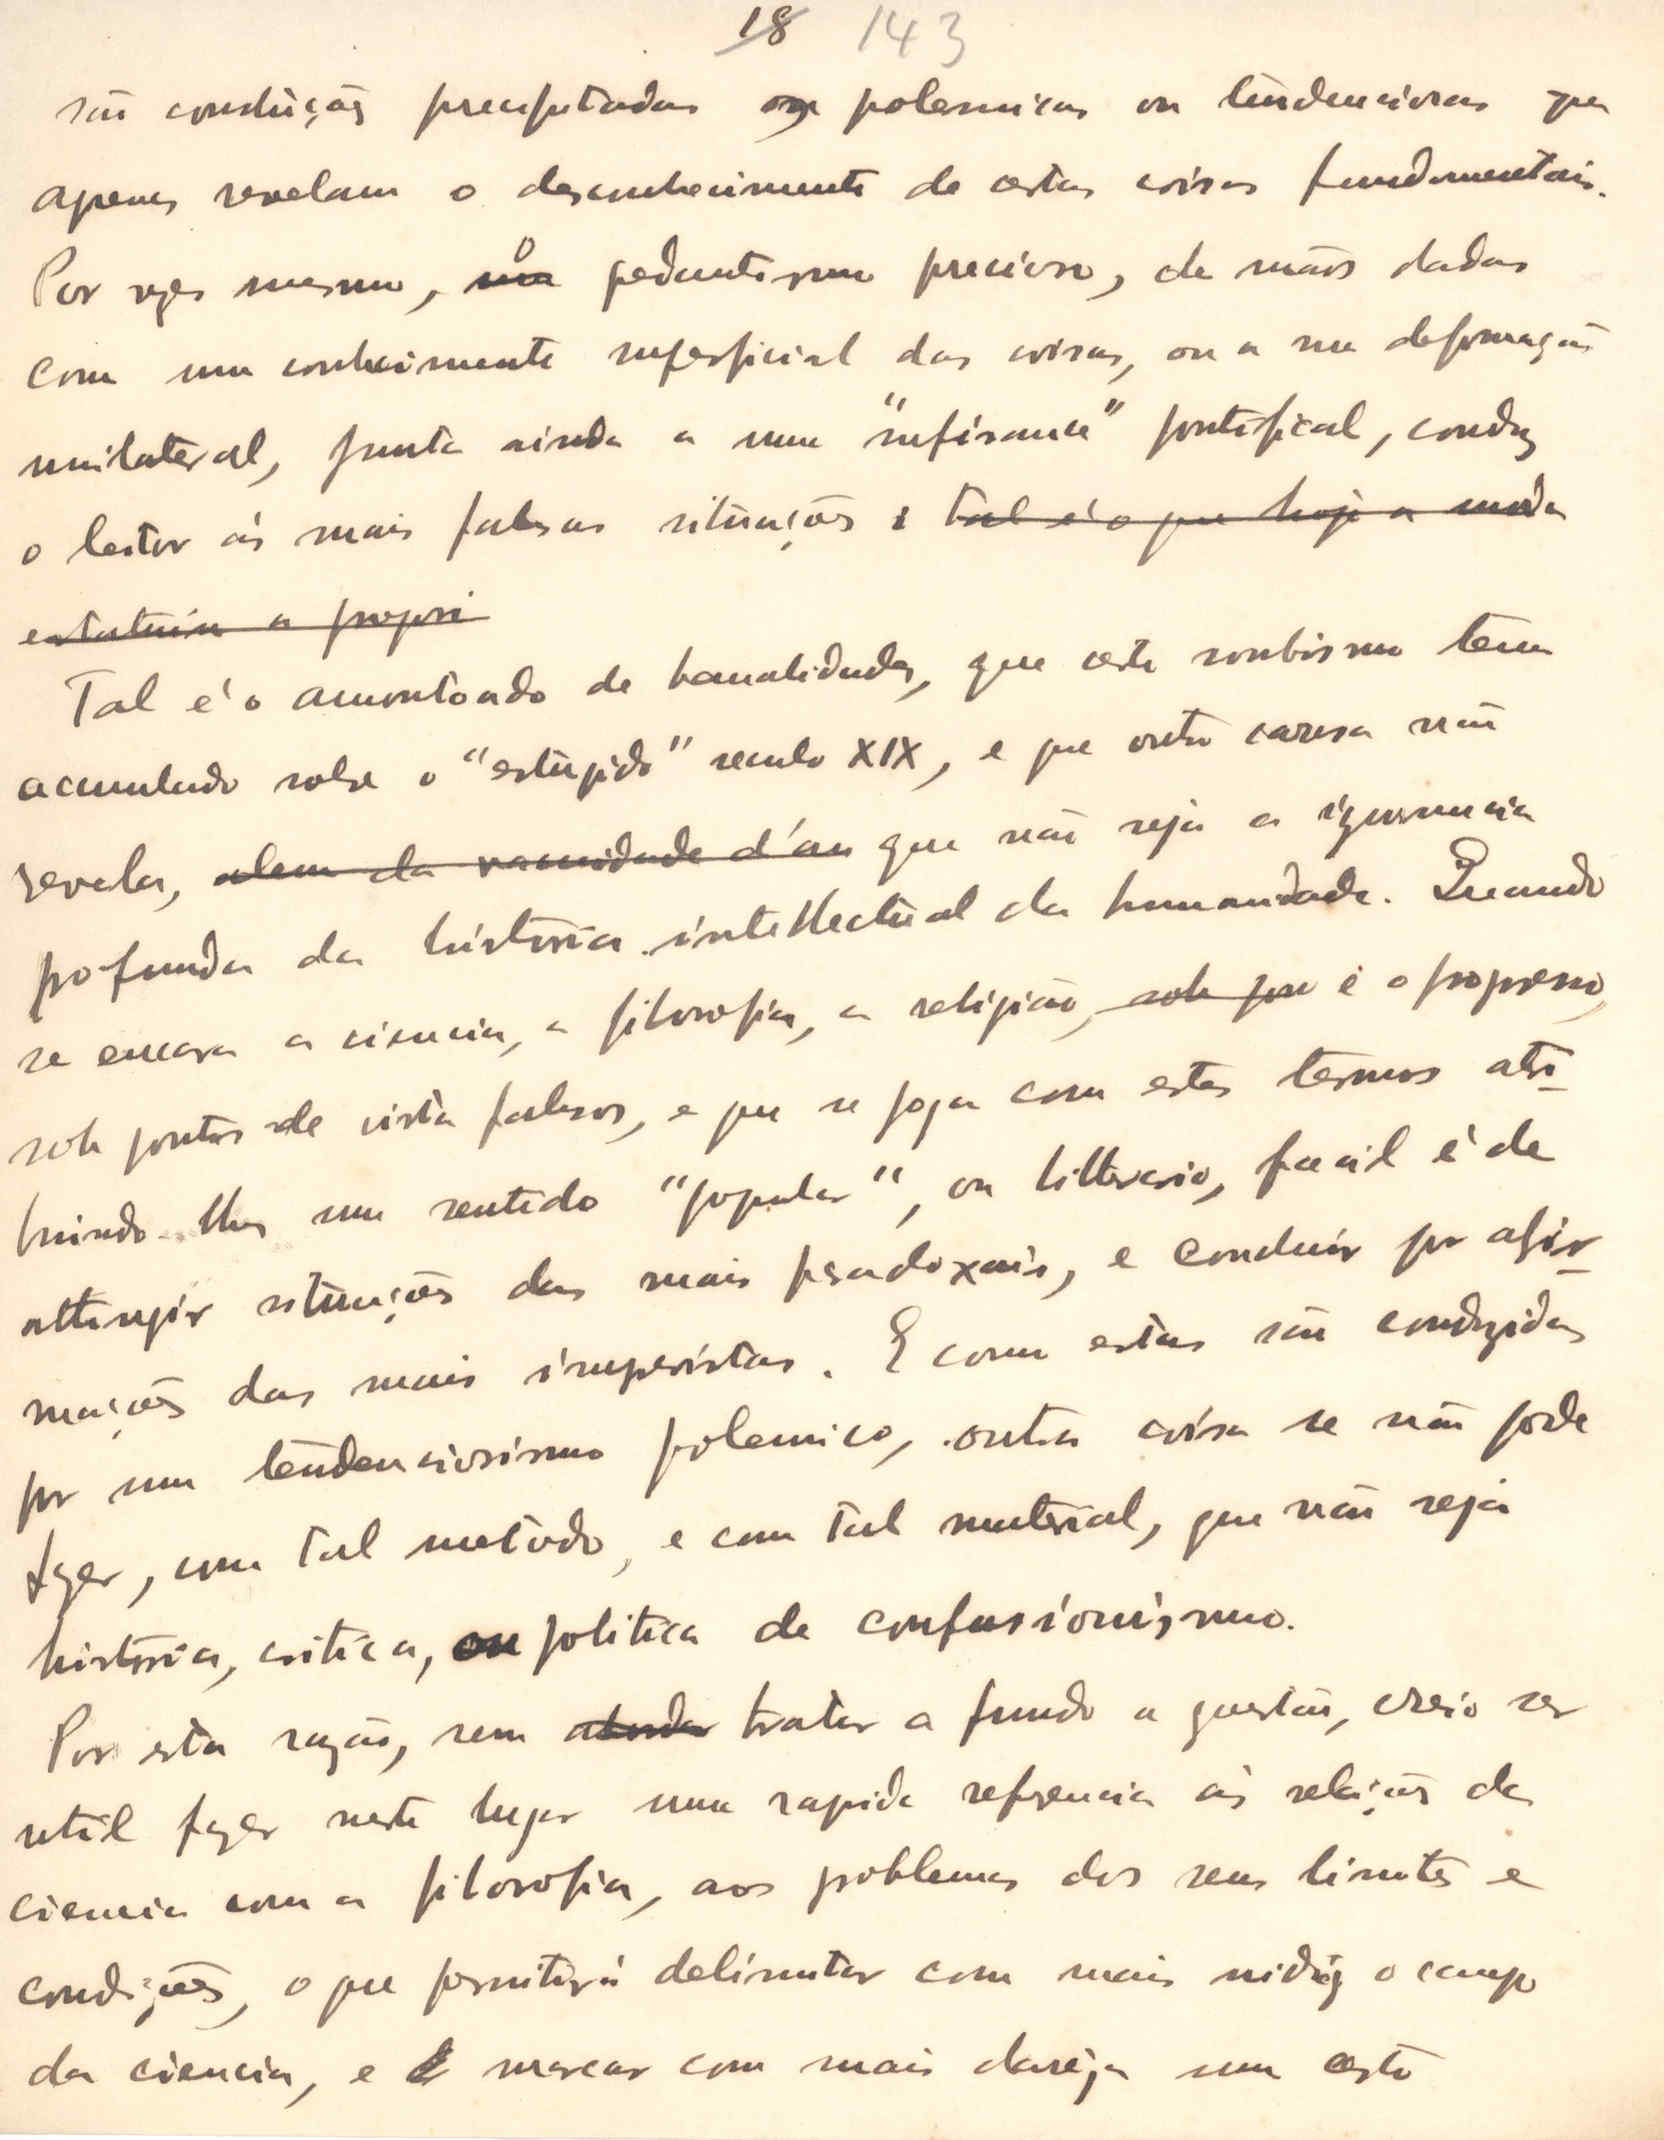 18 143
são conclusões precipitadas ou polemicas ou tendenciosas que
apenas revelam o desconhecimento de certas coisas fundamentais.
Por vezes mesmo, o pedantismo precioso, de mãos dadas
com um conhecimento superficial das coisas, ou a sua deformação
unilateral, junta ainda a uma "sufisance" pontifical, conduz
o leitor ás mais falsas situações : tal é o que hoje a moda
estatuiu a propri
Tal é o amontoado de banalidades, que certo snobismo tem
acumulado sobre o "estúpido" seculo XIX, e que outra causa não
revela, alem da vacuidade d'ou que não seja a ignorancia
profunda da historia intellectual da humanidade. Quando
se encara a ciencia, a filosofia, a religião, sob que é o progresso,
sob pontos de vista falsos, e que se joga com estes termos atri-
buindo-lhes um sentido "popular", ou litterario, facil é de
attingir situações das mais paradoxais, e concluir por afir-
mações das mais imprevistas. E como estas são conduzidas
por um tendenciosismo polemico, outra coisa se não pode
fazer, com tal metodo, e com tal material, que não seja
historia, critica, ou politica de confusionismo.
Por esta razão, sem abordar tratar a fundo a questão, creio ser
util fazer neste lugar uma rapida referencia ás relações da
ciencia com a filosofia, aos problemas dos seus limites e
condições, o que permitirá delimitar com mais nidez o campo
da ciencia, e marcar com mais clareza um certo